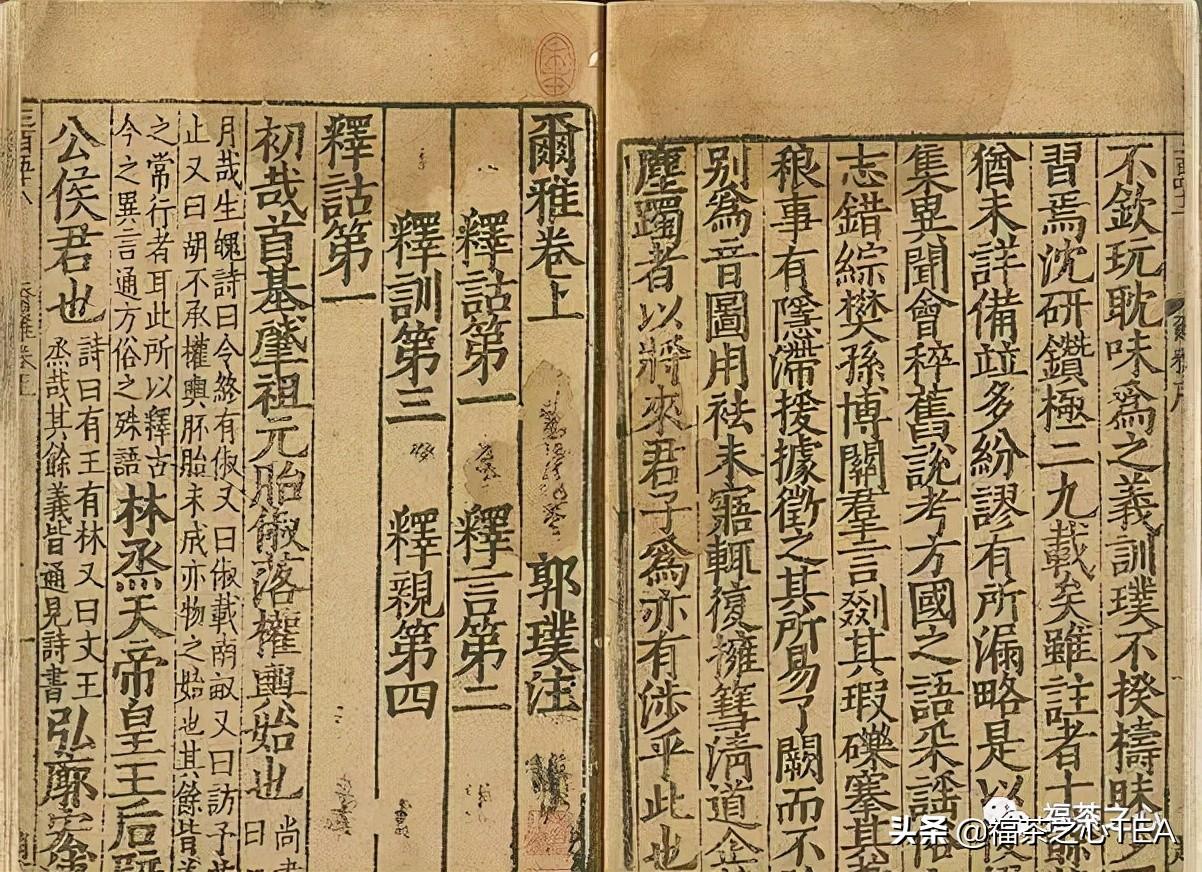 不欽玩耽味爲之義訓璞不揆檮昧少
習焉沈研鑽極二九載矣雖註者十
猶未詳備竝多紛謬有所漏略是以
集異聞會稡舊說考方國之語采謡
志錯綜樊孫博關羣言剟其瑕礫搴其
稂事有隱滯援據徵之其所易了闕而不
别爲音圖用祛未寤輒復擁篲清道企
塵躅者以將來君子爲亦有涉乎此也
爾雅卷上 郭璞注
釋詁第一 釋言第二
釋訓第三 釋親第四
釋詁第一
初哉首基肇祖元胎俶落權輿始也
尚書
曰
月哉生魄詩曰令終有俶又曰俶載南畝又曰訪予
止又曰胡不承權輿胚胎未成亦物之始也其餘皆義
之常行者耳此所以釋古
今之異言通方俗之殊語
林烝天帝皇王后辟
公侯君也
詩曰有王有林又曰文王
烝哉其餘義皆通見詩書
弘廓宏
福茶之心
头条 @福茶之心TEA